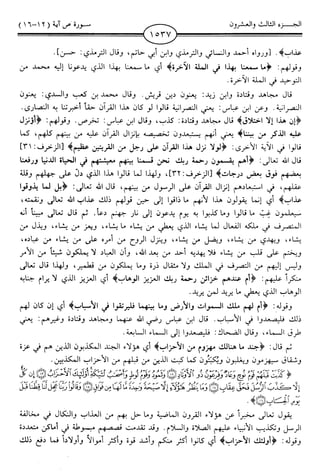 الجـــزء الثالث والعشرون
١٥٣٧
ســورة ص آية (١٢-١٦)
عذاب﴾. [ورواه أحمد والنسائي والترمذي وابن أبي حاتم، وقال الترمذي: حسن].
وقولهم: ﴿ما سمعنا بهذا في الملة الآخرة﴾ أي ما سمعنا بهذا الذي يدعونا إليه محمد من
التوحيد في الملة الآخرة.
قال مجاهد وقتادة وابن زيد: يعنون دين قريش. وقال محمد بن كعب والسدي: يعنون
النصرانية. وعن ابن عباس: يعني النصرانية قالوا لو كان هذا القرآن حقاً أخبرتنا به النصارى.
﴿إن هذا إلا اختلاق﴾ قال مجاهد وقتادة: كذب، وقال ابن عباس: تخرص. وقولهم: ﴿أؤنزل
عليه الذكر من بيننا﴾ يعني أنهم يستبعدون تخصيصه بإنزال القرآن عليه من بينهم كلهم، كما
قالوا في الآية الأخرى: ﴿لولا نزل هذا القرآن على رجل من القريتين عظيم﴾ [الزخرف: ٣١]
قال الله تعالى: ﴿أهم يقسمون رحمة ربك نحن قسمنا بينهم معيشتهم في الحياة الدنيا ورفعنا
بعضهم فوق بعض درجات﴾ [الزخرف: ٣٢]، ولهذا لما قالوا هذا الذي دلّ على جهلهم وقلة
عقلهم، في استبعادهم إنزال القرآن على الرسول من بينهم، قال الله تعالى: ﴿بل لما يذوقوا
عذاب﴾ أي إنما يقولون هذا لأنهم ما ذاقوا إلى حين قولهم ذلك عذاب الله تعالى ونقمته،
سيعلمون غِبَّ ما قالوا وما كذبوا به يوم يدعون إلى نار جهنم دعاً. ثم قال تعالى مبيناً أنه
المتصرف في ملكه الفعال لما يشاء الذي يعطي من يشاء ما يشاء، ويعز من يشاء، ويذل من
يشاء، ويهدي من يشاء، ويضل من يشاء، وينزل الروح من أمره على من يشاء من عباده،
ويختم على قلب من يشاء فلا يهديه أحد من بعد الله، وأن العباد لا يملكون شيئاً من الأمر
وليس إليهم من التصرف في الملك ولا مثقال ذرة وما يملكون من قطمير، ولهذا قال تعالى
منكراً عليهم: ﴿أم عندهم خزائن رحمة ربك العزيز الوهاب﴾ أي العزيز الذي لا يرام جنابه
الوهاب الذي يعطي ما يريد لمن يريد.
وقوله: ﴿أم لهم ملك السموات والأرض وما بينهما فليرتقوا في الأسباب﴾ أي إن كان لهم
ذلك فليصعدوا في الأسباب. قال ابن عباس رضي الله عنهما ومجاهد وقتادة وغيرهم: يعني
طرق السماء، وقال الضحاك: فليصعدوا إلى السماء السابعة.
ثم قال: ﴿جند ما هنالك مهزوم من الأحزاب﴾ أي هؤلاء الجند المكذبون الذين هم في عزة
وشقاق سيهزمون ويغلبون ويُكْبَتُون كما كبت الذين من قبلهم من الأحزاب المكذبين.
﴿كَذَّبَتْ قَبْلَهُمْ قَوْمُ نُوحٍ وَعَادٌ وَفِرْعَوْنُ ذُو الْأَوْتَادِ ۝ وَثَمُودُ وَقَوْمُ لُوطٍ وَأَصْحَابُ لْـَٔيْكَةِ أُولَٰئِكَ الْأَحْزَابُ ۝ إِن كُلٌّ
إِلَّا كَذَّبَ الرُّسُلَ فَحَقَّ عِقَابِ ۝ وَمَا يَنظُرُ هَٰؤُلَاءِ إِلَّا صَيْحَةً وَاحِدَةً مَّا لَهَا مِن فَوَاقٍ ۝ وَقَالُوا رَبَّنَا عَجِّل لَّنَا قِطَّنَا قَبْلَ
يَوْمِ الْحِسَابِ ۝﴾.
يقول تعالى مخبراً عن هؤلاء القرون الماضية وما حل بهم من العذاب والنكال في مخالفة
الرسل وتكذيب الأنبياء عليهم الصلاة والسلام. وقد تقدمت قصصهم مبسوطة في أماكن متعددة
وقوله: ﴿أولئك الأحزاب﴾ أي كانوا أكثر منكم وأشد قوة وأكثر أموالاً وأولاداً فما دفع ذلك